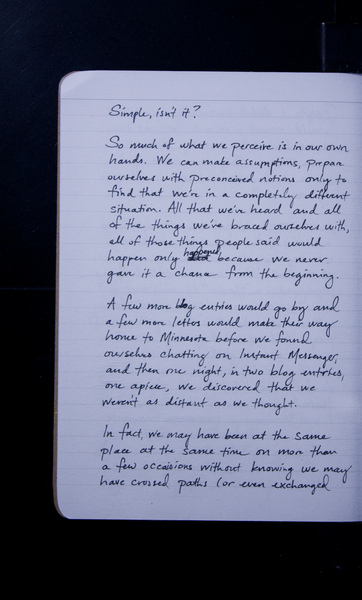 Simple, isn't it?
So much of what we perceive is in our own
hands. We can make assumptions, prepare
ourselves with preconceived notions only to
find that we're in a completely different
situation. All that we've heard and all
of the things we've braced ourselves with,
all of those things people said would
happen only happened because we never
gave it a chance from the beginning.
A few more blog entries would go by and
a few more letters would make their way
home to Minnesota before we found
ourselves chatting on Instant Messenger,
and then one night, in two blog entries,
one apiece, we discovered that we
weren't as distant as we thought.
In fact, we may have been at the same
place at the same time on more than
a few occasions without knowing we may
have crossed paths (or even exchanged